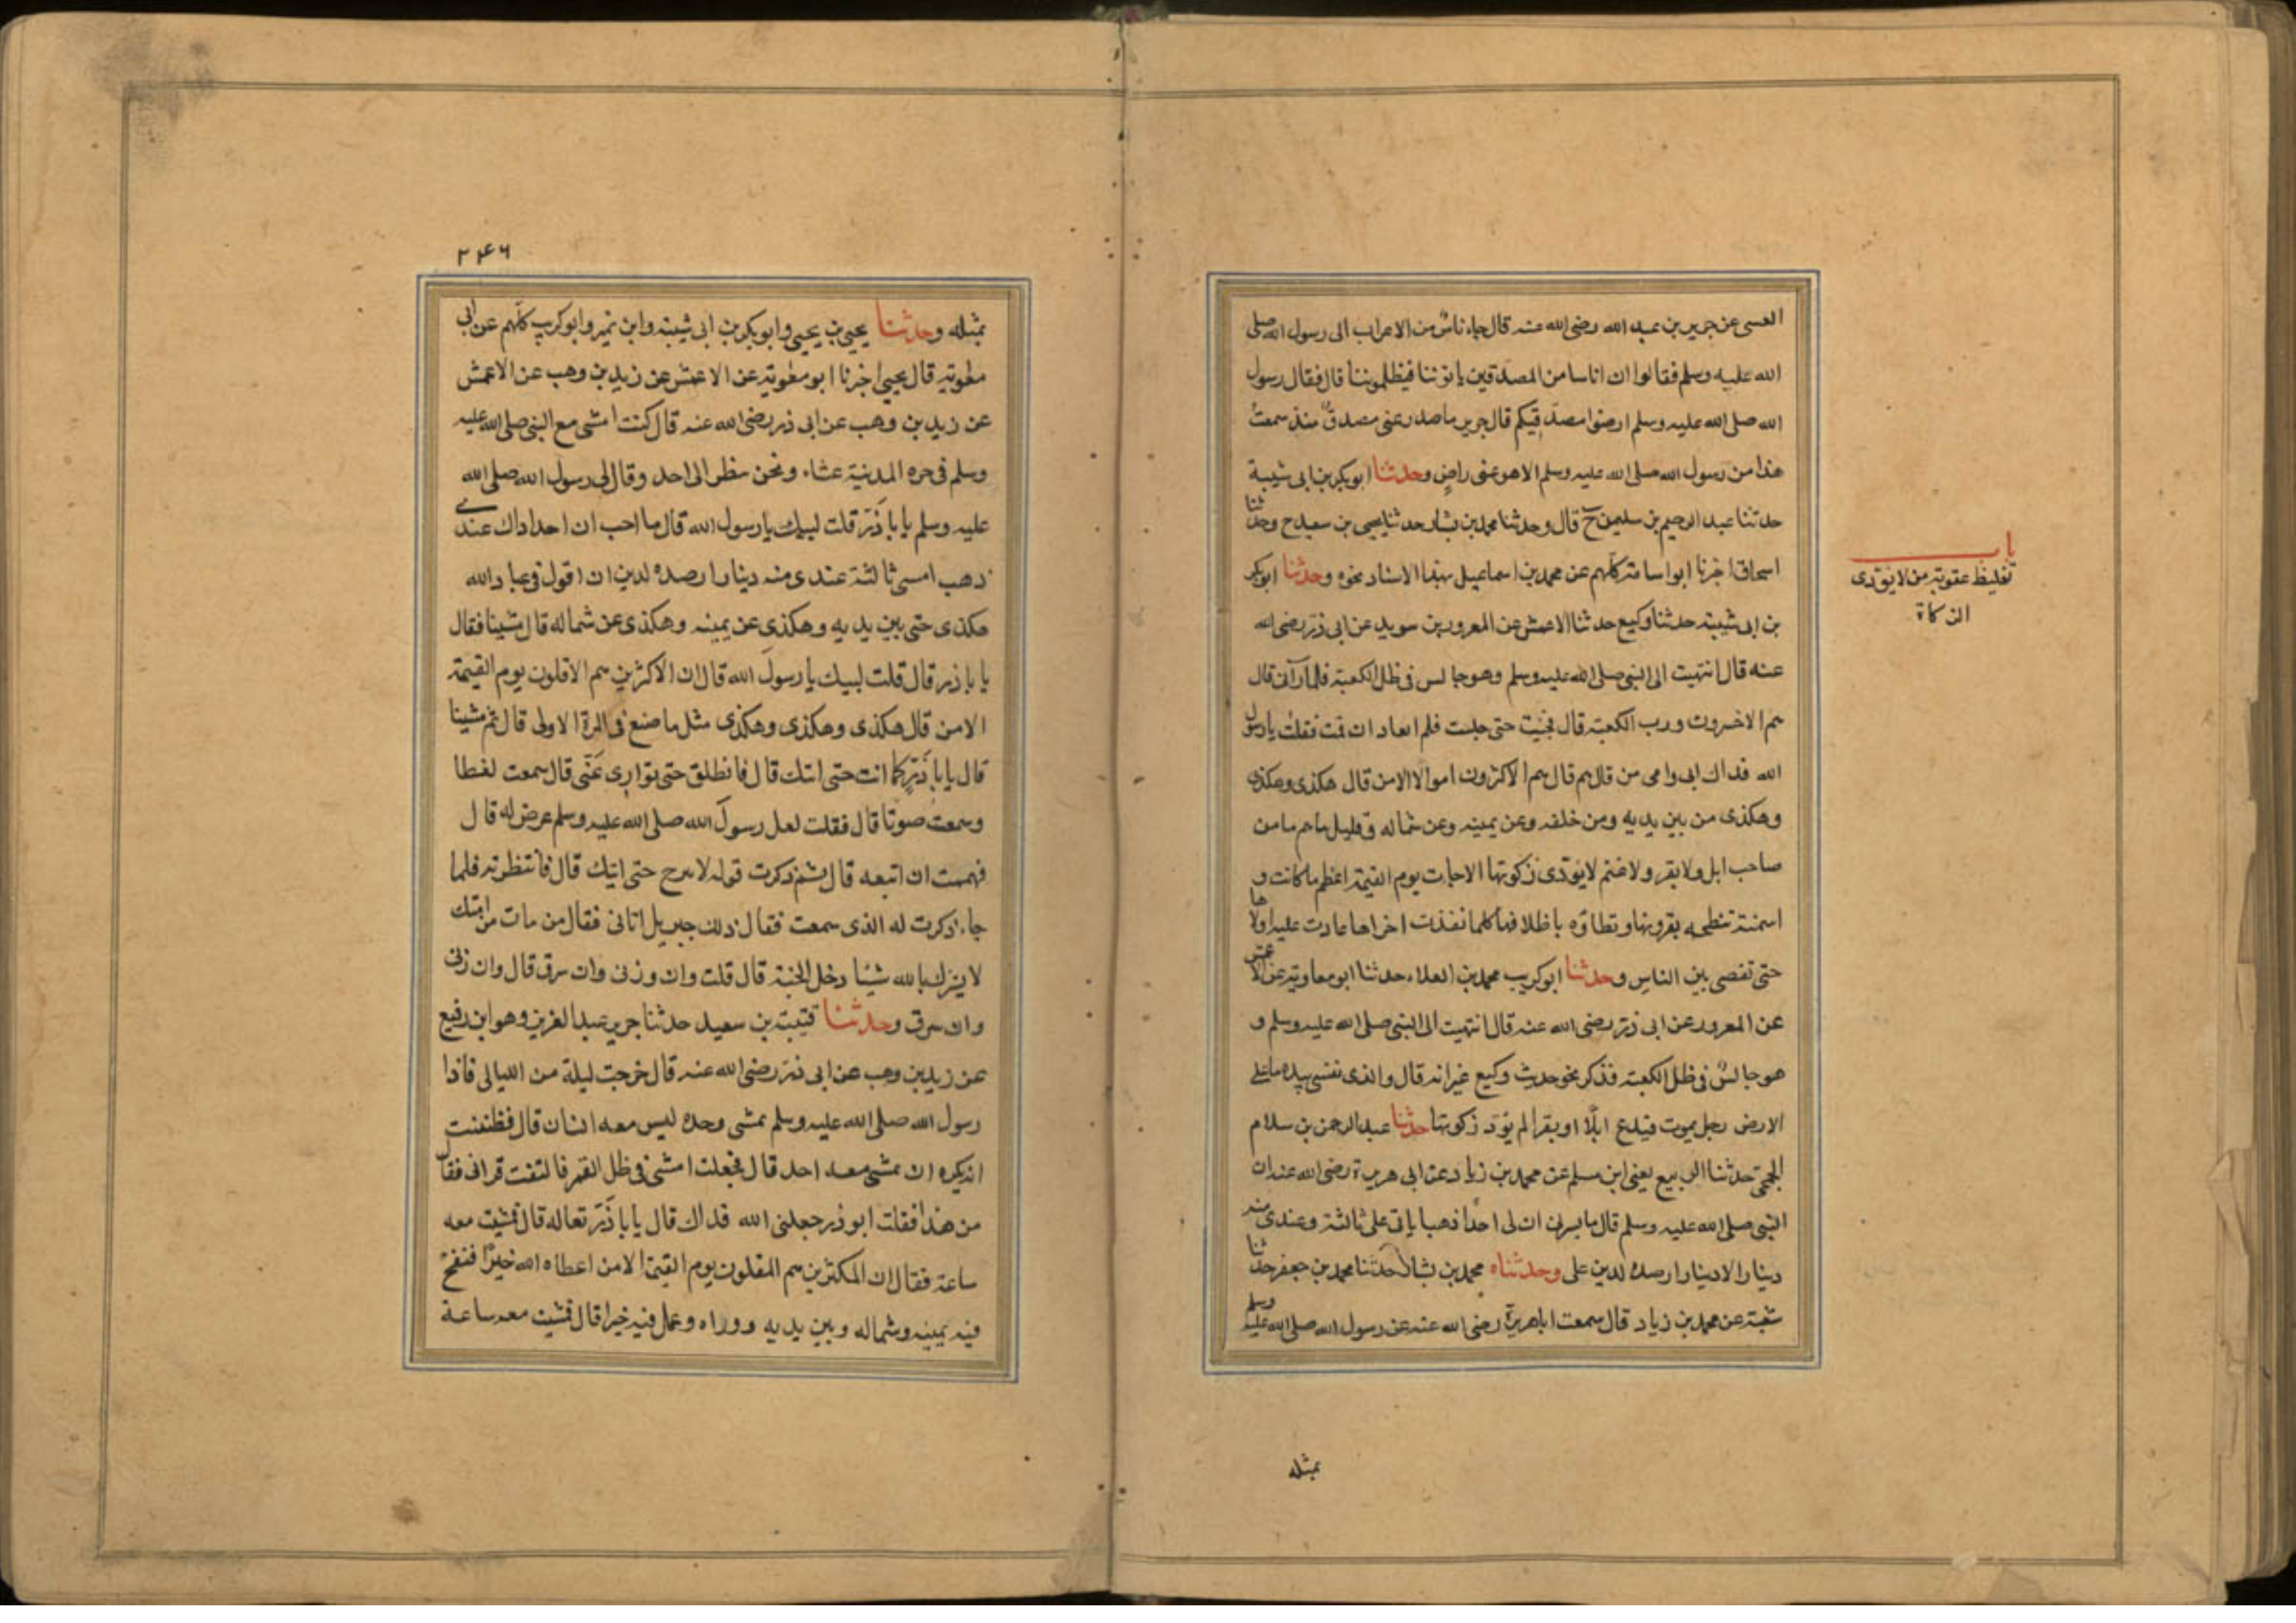 العبسى عن جرير بن عبد الله رضى الله عنه قال جاء ناس من الاعراب الى رسول الله صلى
الله عليه وسلم فقالوا ان اناسا من المصدقين ياتوننا فيظلموننا قال فقال رسول
الله صلى الله عليه وسلم ارضوا مصدقيكم قال جرير ما صدر عنى مصدق منذ سمعت
هذا من رسول الله صلى الله عليه وسلم الا هو عنى راض وحدثنا ابو بكر بن ابى شيبة
حدثنا عبد الرحيم بن سليمن ح قال وحدثنا محمد بن بشار حدثنا يحيى بن سعيد ح وحدثنا
اسحاق اخبرنا ابو اسامة كلهم عن محمد بن اسماعيل بهذا الاسناد نحوه وحدثنا ابو بكر
بن ابى شيبة حدثنا وكيع حدثنا الاعمش عن المعرور بن سويد عن ابى ذر رضى الله
عنه قال انتهيت الى النبى صلى الله عليه وسلم وهو جالس فى ظل الكعبة فلما رآنى قال
هم الاخسرون ورب الكعبة قال فجئت حتى جلست فلم اتعاد ان قمت فقلت يا رسول
الله فداك ابى وامى من قال هم قال هم الاكثرون اموالا الا من قال هكذى وهكذى
وهكذى من بين يديه ومن خلفه وعن يمينه وعن شماله وقليل ما هم ما من
صاحب ابل ولا بقر ولا غنم لا يؤدى زكوتها الا جاءت يوم القيمة اعظم ما كانت و
اسمنه تنطحه بقرونها وتطاؤه باظلافها كلما نفذت اخراها عادت عليه اولاها
حتى تقضى بين الناس وحدثنا ابو كريب محمد بن العلاء حدثنا ابو معاوية عن الاعمش
عن المعرور عن ابى ذر رضى الله عنه قال انتهيت الى النبى صلى الله عليه وسلم و
هو جالس فى ظل الكعبة فذكر نحو حديث وكيع غير انه قال والذى نفسى بيده ما على
الارض رجل يموت فيدع ابلا او بقرا لم يؤد زكوتها حدثنا عبد الرحمن بن سلام
الجمحى حدثنا الربيع يعنى ابن مسلم عن محمد بن زياد عن ابى هريرة رضى الله عنه ان
النبى صلى الله عليه وسلم قال ما يسرنى ان لى احدا ذهبا ياتى على ثالثة وعندى منه
دينار الا دينارا ارصده لدين على وحدثناه محمد بن بشار حدثنا محمد بن جعفر حدثنا
شعبة عن محمد بن زياد قال سمعت ابا هريرة رضى الله عنه عن رسول الله صلى الله عليه وسلم
بمثله
باب
تغليظ عقوبة من لا يؤدى
الزكاة
۲۴۶
بمثله وحدثنا يحيى بن يحيى وابو بكر بن ابى شيبة وابن نمير وابو كريب كلهم عن ابى
معوية قال يحيى اخبرنا ابو معوية عن الاعمش عن زيد بن وهب عن الاعمش
عن زيد بن وهب عن ابى ذر رضى الله عنه قال كنت امشى مع النبى صلى الله عليه
وسلم فى حره المدينة عشاء ونحن ننظر الى احد وقال لى رسول الله صلى الله
عليه وسلم يا با ذر قلت لبيك يا رسول الله قال ما احب ان احدا ذاك عندى
ذهب امسى ثالثة عندى منه دينارا ارصده لدين ان اقول فى عباد الله
هكذى حتى بين يديه وهكذى عن يمينه وهكذى عن شماله قال مشينا فقال
يا با ذر قال قلت لبيك يا رسول الله قال ان الاكثرين هم الاقلون يوم القيمة
الا من قال هكذى وهكذى وهكذى مثل ما صنع فى المرة الاولى قال ثم مشينا
قال يا با ذر كما انت حتى اتيك قال فانطلق حتى توارى عنى قال سمعت لغطا
وسمعت صوتا قال فقلت لعل رسول الله صلى الله عليه وسلم عرض له قال
فهممت ان اتبعه قال ثم ذكرت قوله لا تبرح حتى اتيك قال فانتظرته فلما
جاء ذكرت له الذى سمعت فقال ذلك جبريل اتانى فقال من مات من امتك
لا يشرك بالله شيئا دخل الجنة قال قلت وان وزنى وان سرق قال وان زنى
وان سرق وحدثنا قتيبة بن سعيد حدثنا جرير عبد العزيز وهو ابن رفيع
عن زيد بن وهب عن ابى ذر رضى الله عنه قال خرجت ليلة من الليالى فاذا
رسول الله صلى الله عليه وسلم يمشى وحده ليس معه انسان قال فظننت
انه يكره ان يمشى معه احد قال فجعلت امشى فى ظل القمر فالتفت فرآنى فقال
من هذا فقلت ابو ذر جعلنى الله فداك قال يا با ذر تعاله قال فمشيت معه
ساعة فقال ان المكثرين هم المقلون يوم القيمة الا من اعطاه الله خيرا فنفح
فيه يمينه وشماله وبين يديه ووراه وعمل فيه خيرا قال فمشيت معه ساعة